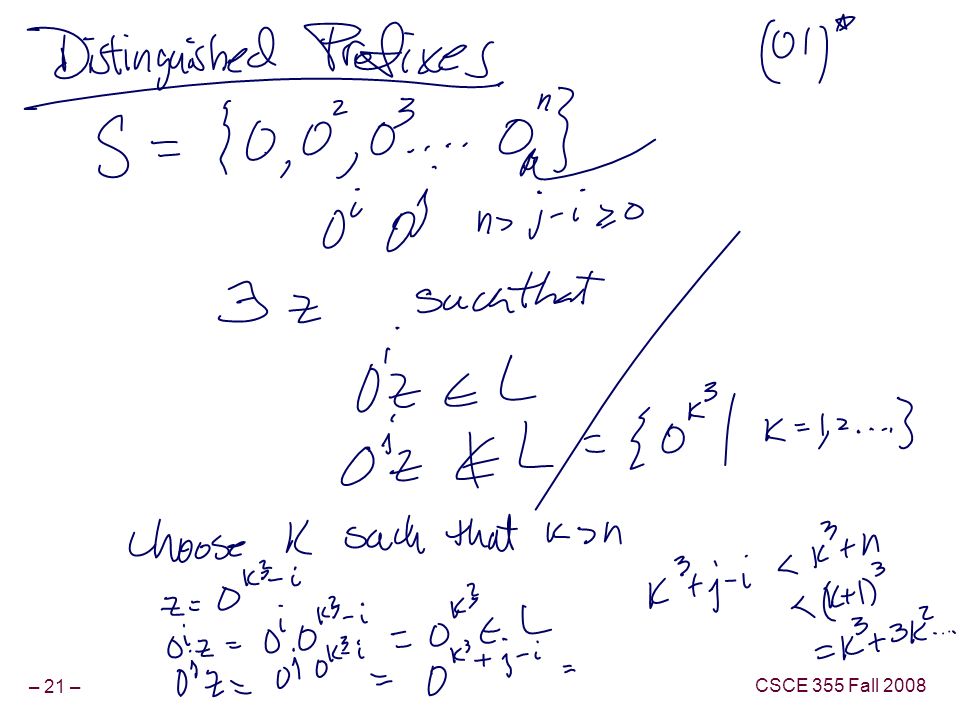 Distinguished Prefixes
(01)*
S = {0, 0², 0³ .... 0ⁿ}
0ⁱ 0ʲ n > j-i ≥ 0
∃ z such that
0ⁱz ∈ L
0ʲz ∉ L = {0^k³ | k = 1, 2 ....}
choose K such that k > n
z = 0^k³-i
0ⁱ.z = 0ⁱ.0^k³-i = 0^k³ ∈ L
0ʲz = 0ʲ 0^k³-i = 0^k³+j-i =
k³+j-i < k³+n
< (k+1)³
= k³+3k²...
– 21 –
CSCE 355 Fall 2008